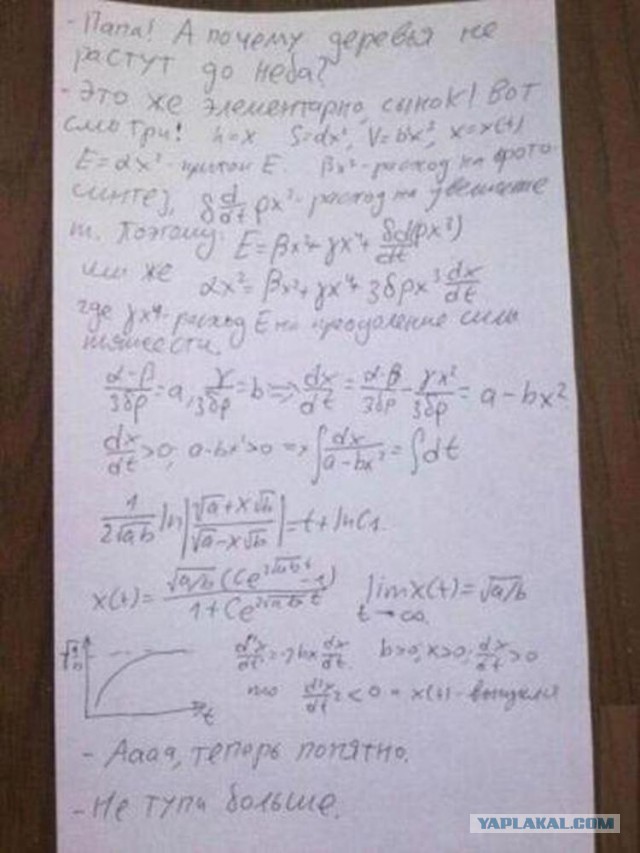 - Папа! А почему деревья не
растут до неба?
- Это же элементарно, сынок! Вот
смотри! h=x S=dx², V=bx³, x=x(t)
E=αx² - приток E. βx² - расход на фото-
синтез, δ d/dt ρx³ - расход на увеличение
m. Поэтому: E=βx²+γx⁴+ δd(ρx³)/dt
или же αx²=βx²+γx⁴+3δρx² dx/dt
где γx⁴ - расход E на преодоление силы
тяжести.
(α-β)/3δρ = a, γ/3δρ = b => dx/dt = (α-β)/3δρ - γx²/3δρ = a-bx²
dx/dt>0; a-bx²>0 => ∫dx/(a-bx²) = ∫dt
1/(2√ab) ln|(√a+x√b)/(√a-x√b)| = t+lnC1.
x(t) = √a/b (Ce^(2√ab t) -1)/(1+Ce^(2√ab t)) lim x(t) = √a/b t→∞
√a/b d²x/dt² = -2bx dx/dt b>0, x>0, dx/dt>0
t то d²x/dt² <0 = x(t) - выпукла
- Аааа, теперь понятно.
- Не тупи больше.
YAPLAKAL.COM